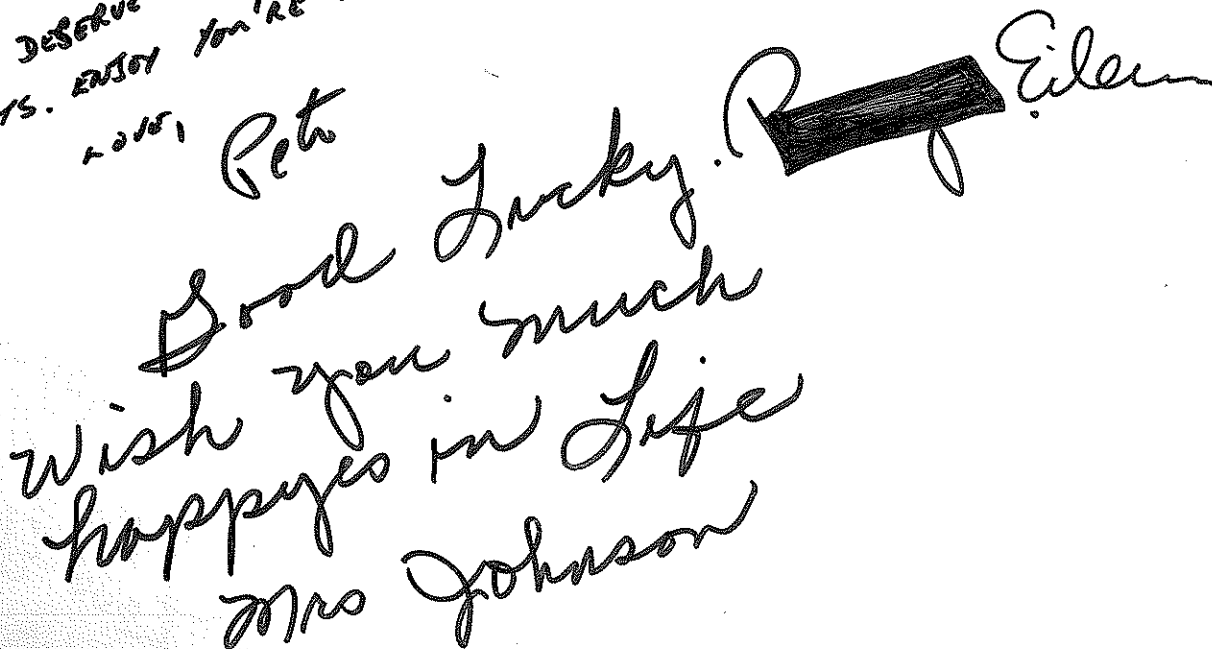 DESERVE
TS. ENJOY YOU'RE
LOVE,
Pete
Good Lucky. Eileen
Wish you much
happyes in Life
Mrs Johnson